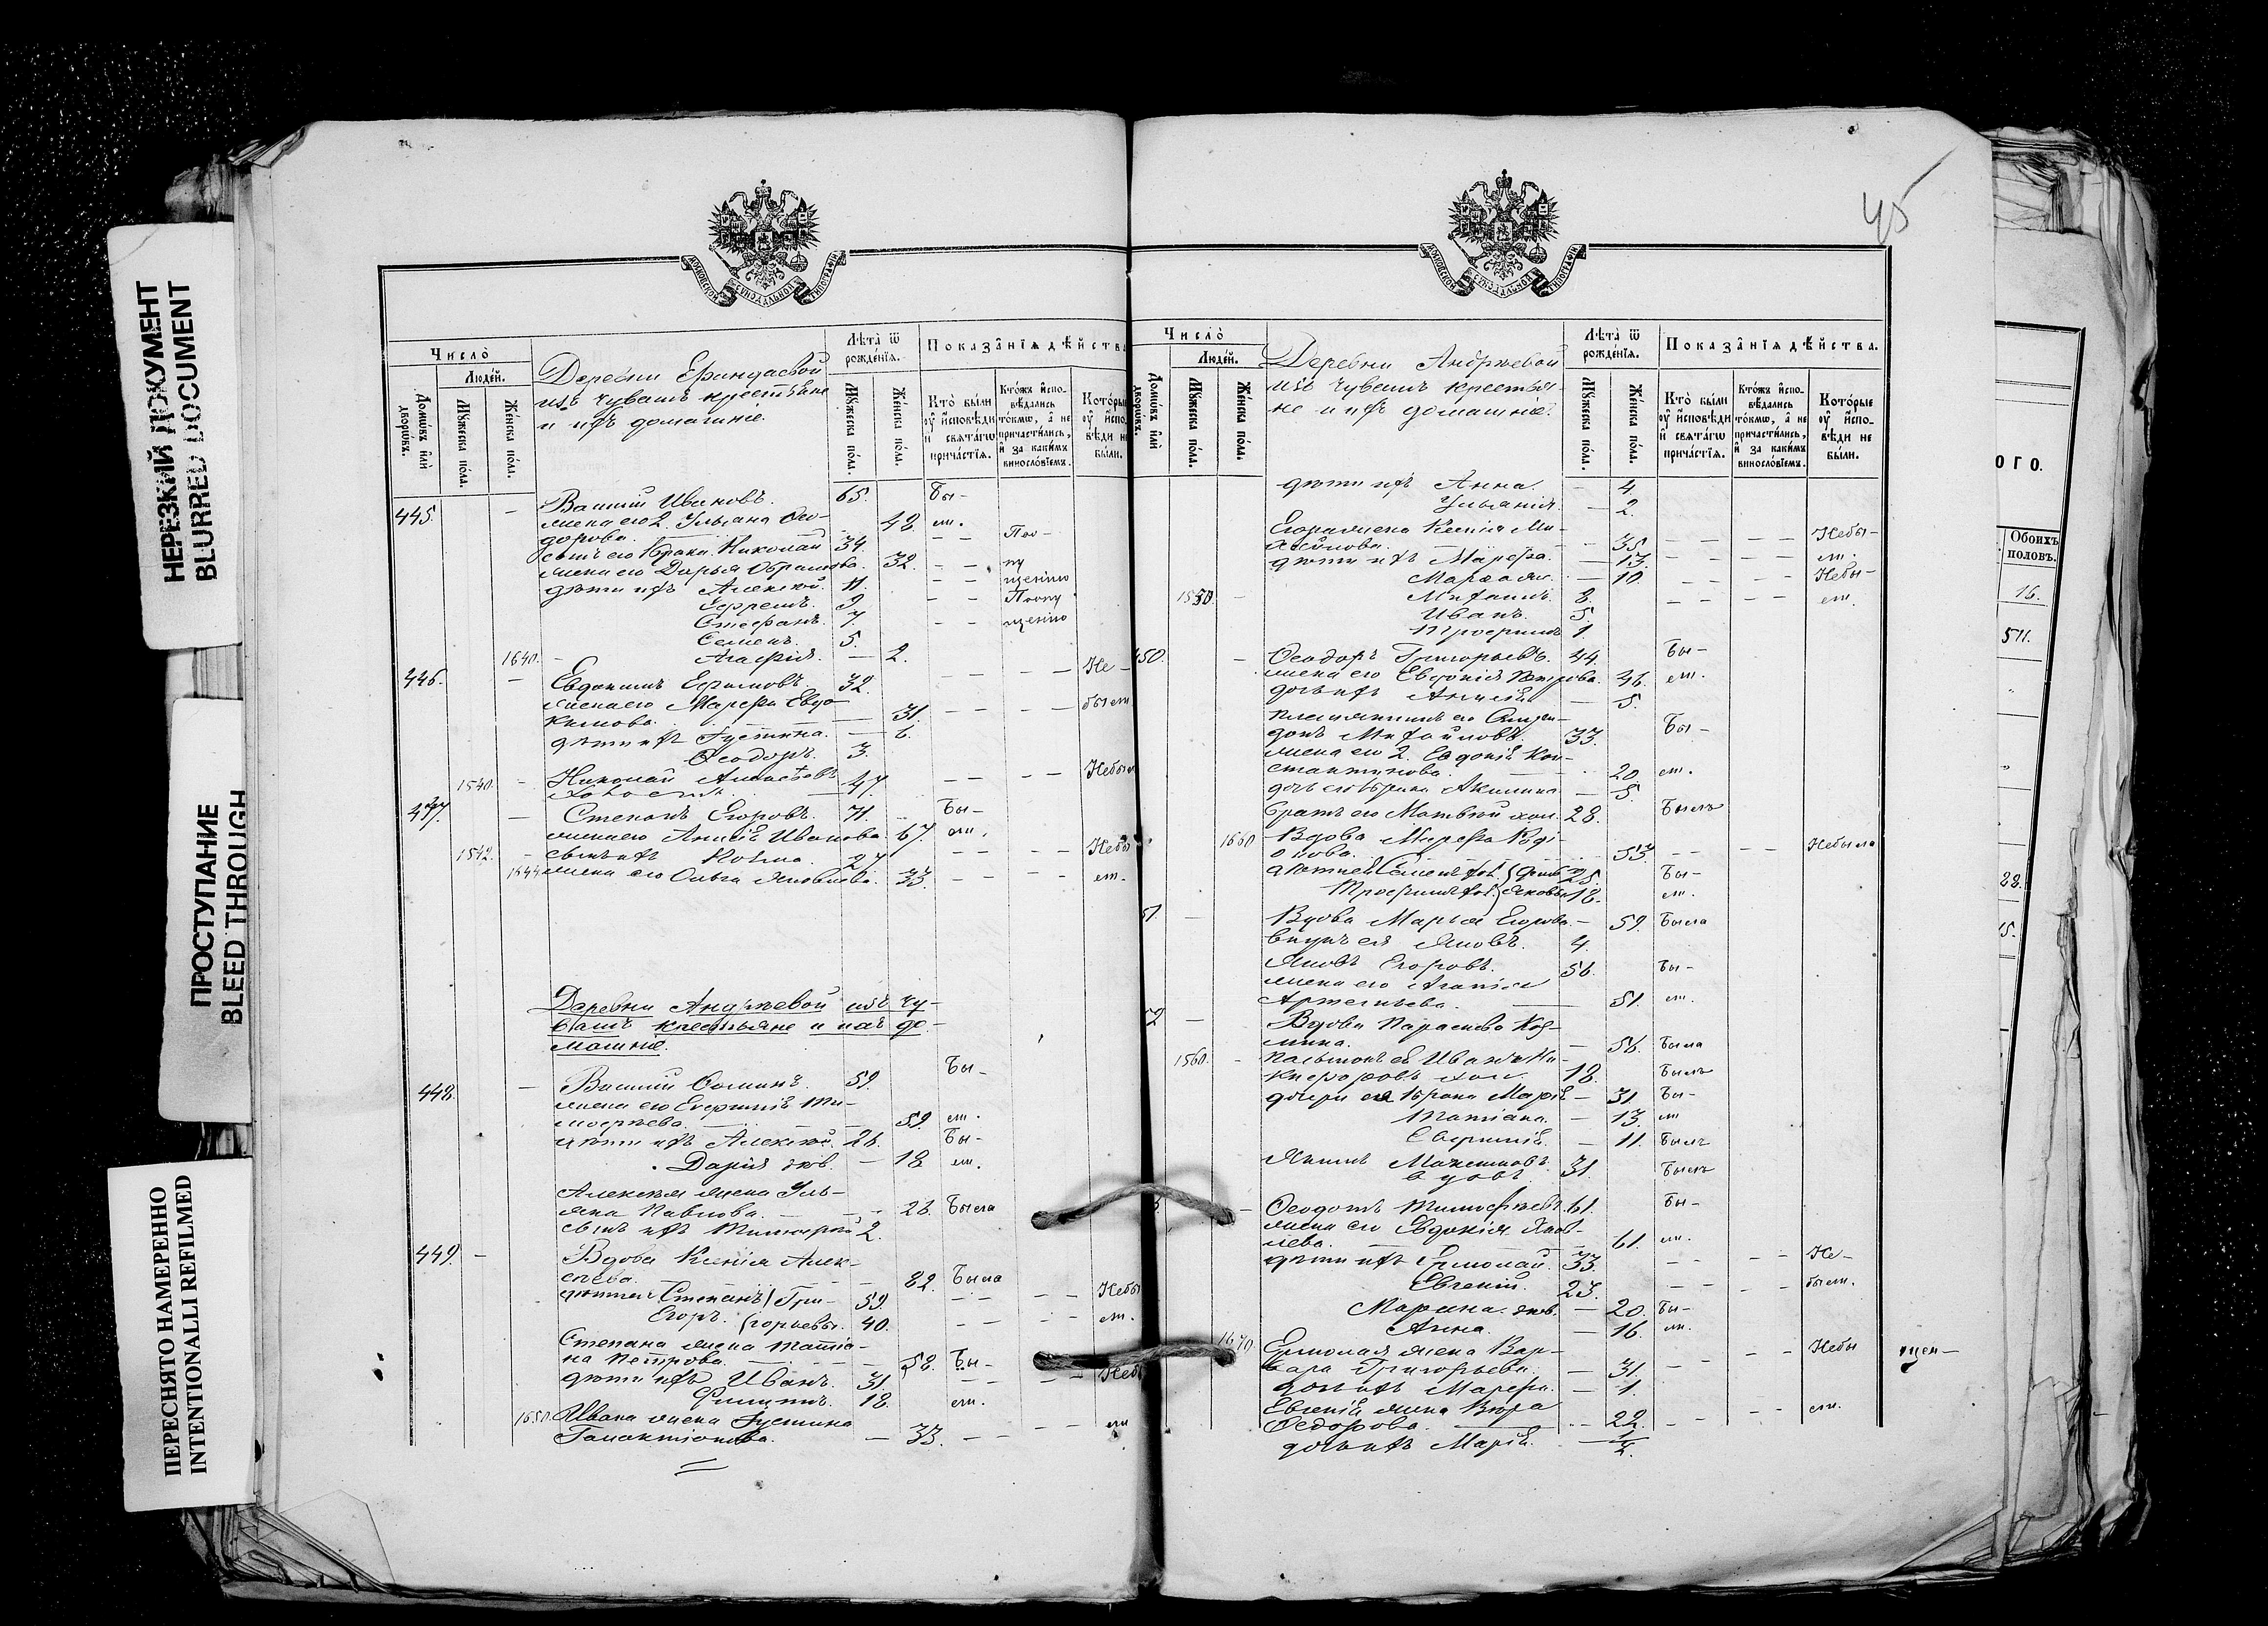 НЕРЕЗКИЙ ДОКУМЕНТ
BLURRED DOCUMENT
ПРОСТУПАНИЕ
BLEED THROUGH
ПЕРЕСНЯТО НАМЕРЕННО
INTENTIONALLI REFILMED
МОСКОВСКОЙ СѴНОДАЛЬНОЙ ТИПОГРАФІИ
Число̀
Домѡ́въ и҆лѝ дворѡ́въ.
Люде́й.
Мꙋ́жеска по́ла.
Же́нска по́ла.
из чувашъ крестьяне
и ихъ домашніе.
Лѣта̀ ѿ рожде́нїѧ.
Мꙋ́жеска по́ла.
Же́нска по́ла.
Показа̂нїѧ дѣ́йства
Кто̀ бы́ли ᲂу҆ и҆́сповѣди и҆ свѧта́гѡ прича́стїѧ.
Кто́жъ и҆спо-вѣ́дались то́кмѡ, а҆ не причасти́лись, и҆ за каки́мъ винословїемъ.
Кото́рые ᲂу҆ и҆́спо-вѣди не бы́ли.
445. Василий Ивановъ. 65. Бы-
жена его 2. Ульяна Фео-
дорова. 48 ли.
сынъ его 1 брака Николай 34. Поо-
жена его Дарья 32. пу
дѣти ихъ Алексѣй. 11. щенію
Ефремъ. 9. Поопу
Стефанъ. 7. щенію
Семенъ. 5.
1640. Агафія. 2.
446. Евдокимъ Ефимовъ. 32. Не-
жена его Марфа Евдо-
кимова. 31. были
дѣти ихъ Густина. 6.
Феодоръ. 3.
1540. Николай 47. Небыл
447. Степанъ Егоровъ. 71. Бы-
жена его Анисія Иванова. 67. ли.
1542. сынъ ихъ Козма. 27. Небы
1644 жена его Ольга Яковлева. 33. ли.
Деревни Андрѣевой изъ чу-
вашъ крестьяне и ихъ до-
машніе.
448. Василий 59. Бы-
жена его Евфимія Ти-
моѳеева. 59. ли.
дѣти ихъ Алексѣй. 26. Бы-
Дарія 18 ли.
Алексѣя жена Уль-
яна Павлова. 26. Была
сынъ ихъ Тимоѳей 2.
449. Вдова Ксенія Алек-
сѣева. 82. Была
дѣти ея Степанъ Гри- 59. Небы
Егоръ. горьевы. 40. ли.
Степана жена Татіа-
на Петрова. 58. Бы-
дѣти ихъ Иванъ. 31. Небы
Филиппъ. 18. ли.
1650. Ивана жена Густина
Галактіонова. 33. ли
45
Число̀
Домѡ́въ и҆лѝ дворѡ́въ.
Люде́й.
Мꙋ́жеска по́ла.
Же́нска по́ла.
Деревни Андрѣевой
изъ чувашъ крестья-
не и ихъ домашніе.
Лѣта̀ ѿ рожде́нїѧ.
Мꙋ́жеска по́ла.
Же́нска по́ла.
Показа̂нїѧ дѣ́йства.
Кто̀ бы́ли ᲂу҆ и҆́сповѣди и҆ свѧта́гѡ прича́стїѧ.
Кто́жъ и҆спо-вѣ́дались то́кмѡ, а҆ не причасти́лись, и҆ за каки́мъ винословїемъ.
Кото́рые ᲂу҆ и҆́спо-вѣди не бы́ли.
дѣти ихъ Анна. 4.
Ульянія. 2.
Егора жена Ксенія Ми-
хайлова. 35. Небы-
дѣти ихъ Марѳа. 13. ли.
10. Небы-
1550. Михаилъ. 8. ли.
Иванъ. 5.
Трофимъ 1.
450. Феодоръ Григорьевъ. 44. Бы-
жена его Евдокія Петрова. 46. ли.
дочь ихъ 5.
племянникъ его
Михайловъ. 33. Бы-
жена его 2. Евдокія Кон-
стантинова. 20 ли.
дочь его 1 брака Акилина 5.
братъ его Матвѣй хол. 28. Былъ
1660 Вдова Марфа Роді-
онова. 53. Небыла
дѣти ея Семенъ хол. 25. Бы-
Трофимъ хол. Яковлевы 18. ли.
51. Вдова Марья Егорова. 59. Была
внукъ ея Яковъ. 4.
Яковъ Егоровъ. 56. Бы-
жена его
Артемьева. 51. ли.
52. Вдова Параскева Коз-
мина. 56. Была
1560. Иванъ Ни-
кифоровъ хол. 18. Былъ
дочери его 1 брака Марія 31 Бы-
Татіана. 13. ли
Евфимія. 11. Былъ
Максимовъ
вдовъ. 31. Былъ
Феодотъ Тимоѳеевъ 61. Бы-
жена его Евдокія Яков-
лева. 61. ли.
дѣти ихъ Ермолай. 33. Не-
Евгеній. 23. были.
Марина 20. Бы-
Анна. 16. ли.
1670. Ермолая жена Вар-
вара Григорьева. 31. Небы
дочь ихъ Марфа. 1.
Евгенія жена Вѣра
Ѳедорова. 22. ли.
дочь ихъ Марія. 1/2.
ого.
Обоихъ половъ.
16.
511.
28.
15.